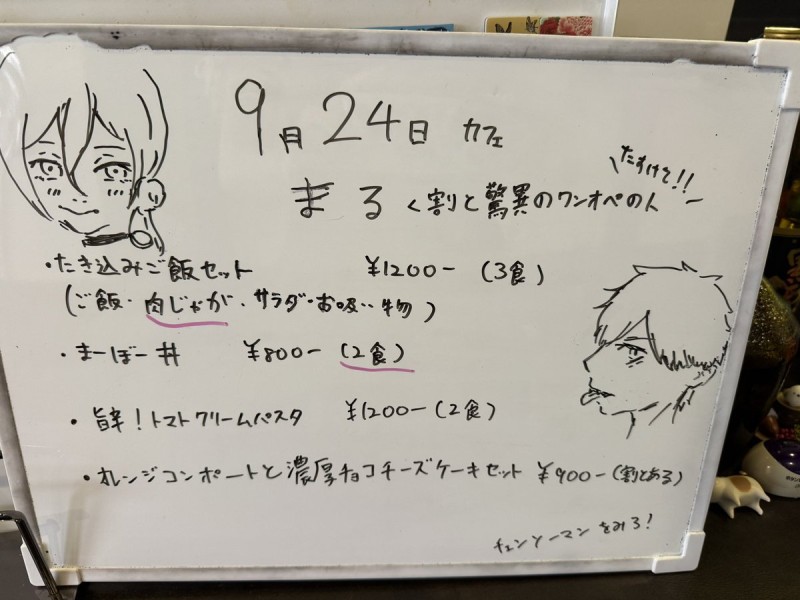 9月24日 カフェ
たすけて!!
まる <割と驚異のワンオペの人
・たき込みご飯セット ¥1200- (3食)
(ご飯・肉じゃが・サラダ・お吸い物)
・まーぼー丼 ¥800- (2食)
・旨辛!トマトクリームパスタ ¥1200- (2食)
・オレンジコンポートと濃厚チョコチーズケーキセット ¥900- (割とある)
チェンソーマンをみろ!